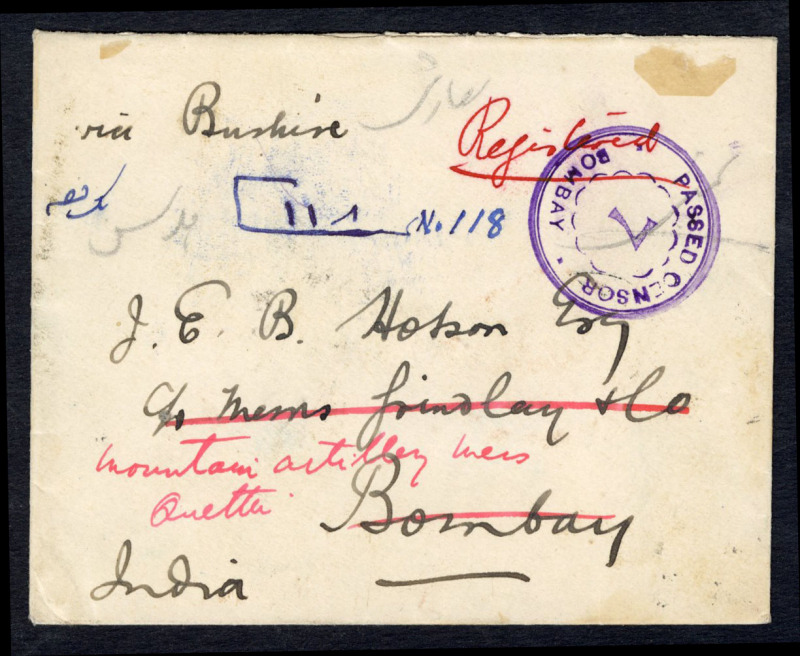 via Bushire
Registered
PASSED CENSOR
BOMBAY
7
١١٨
No. 118
J. E. B. Hotson Esq
c/o Messrs Grindlay & Co
Mountain artillery Mess
Quetta
Bombay
India